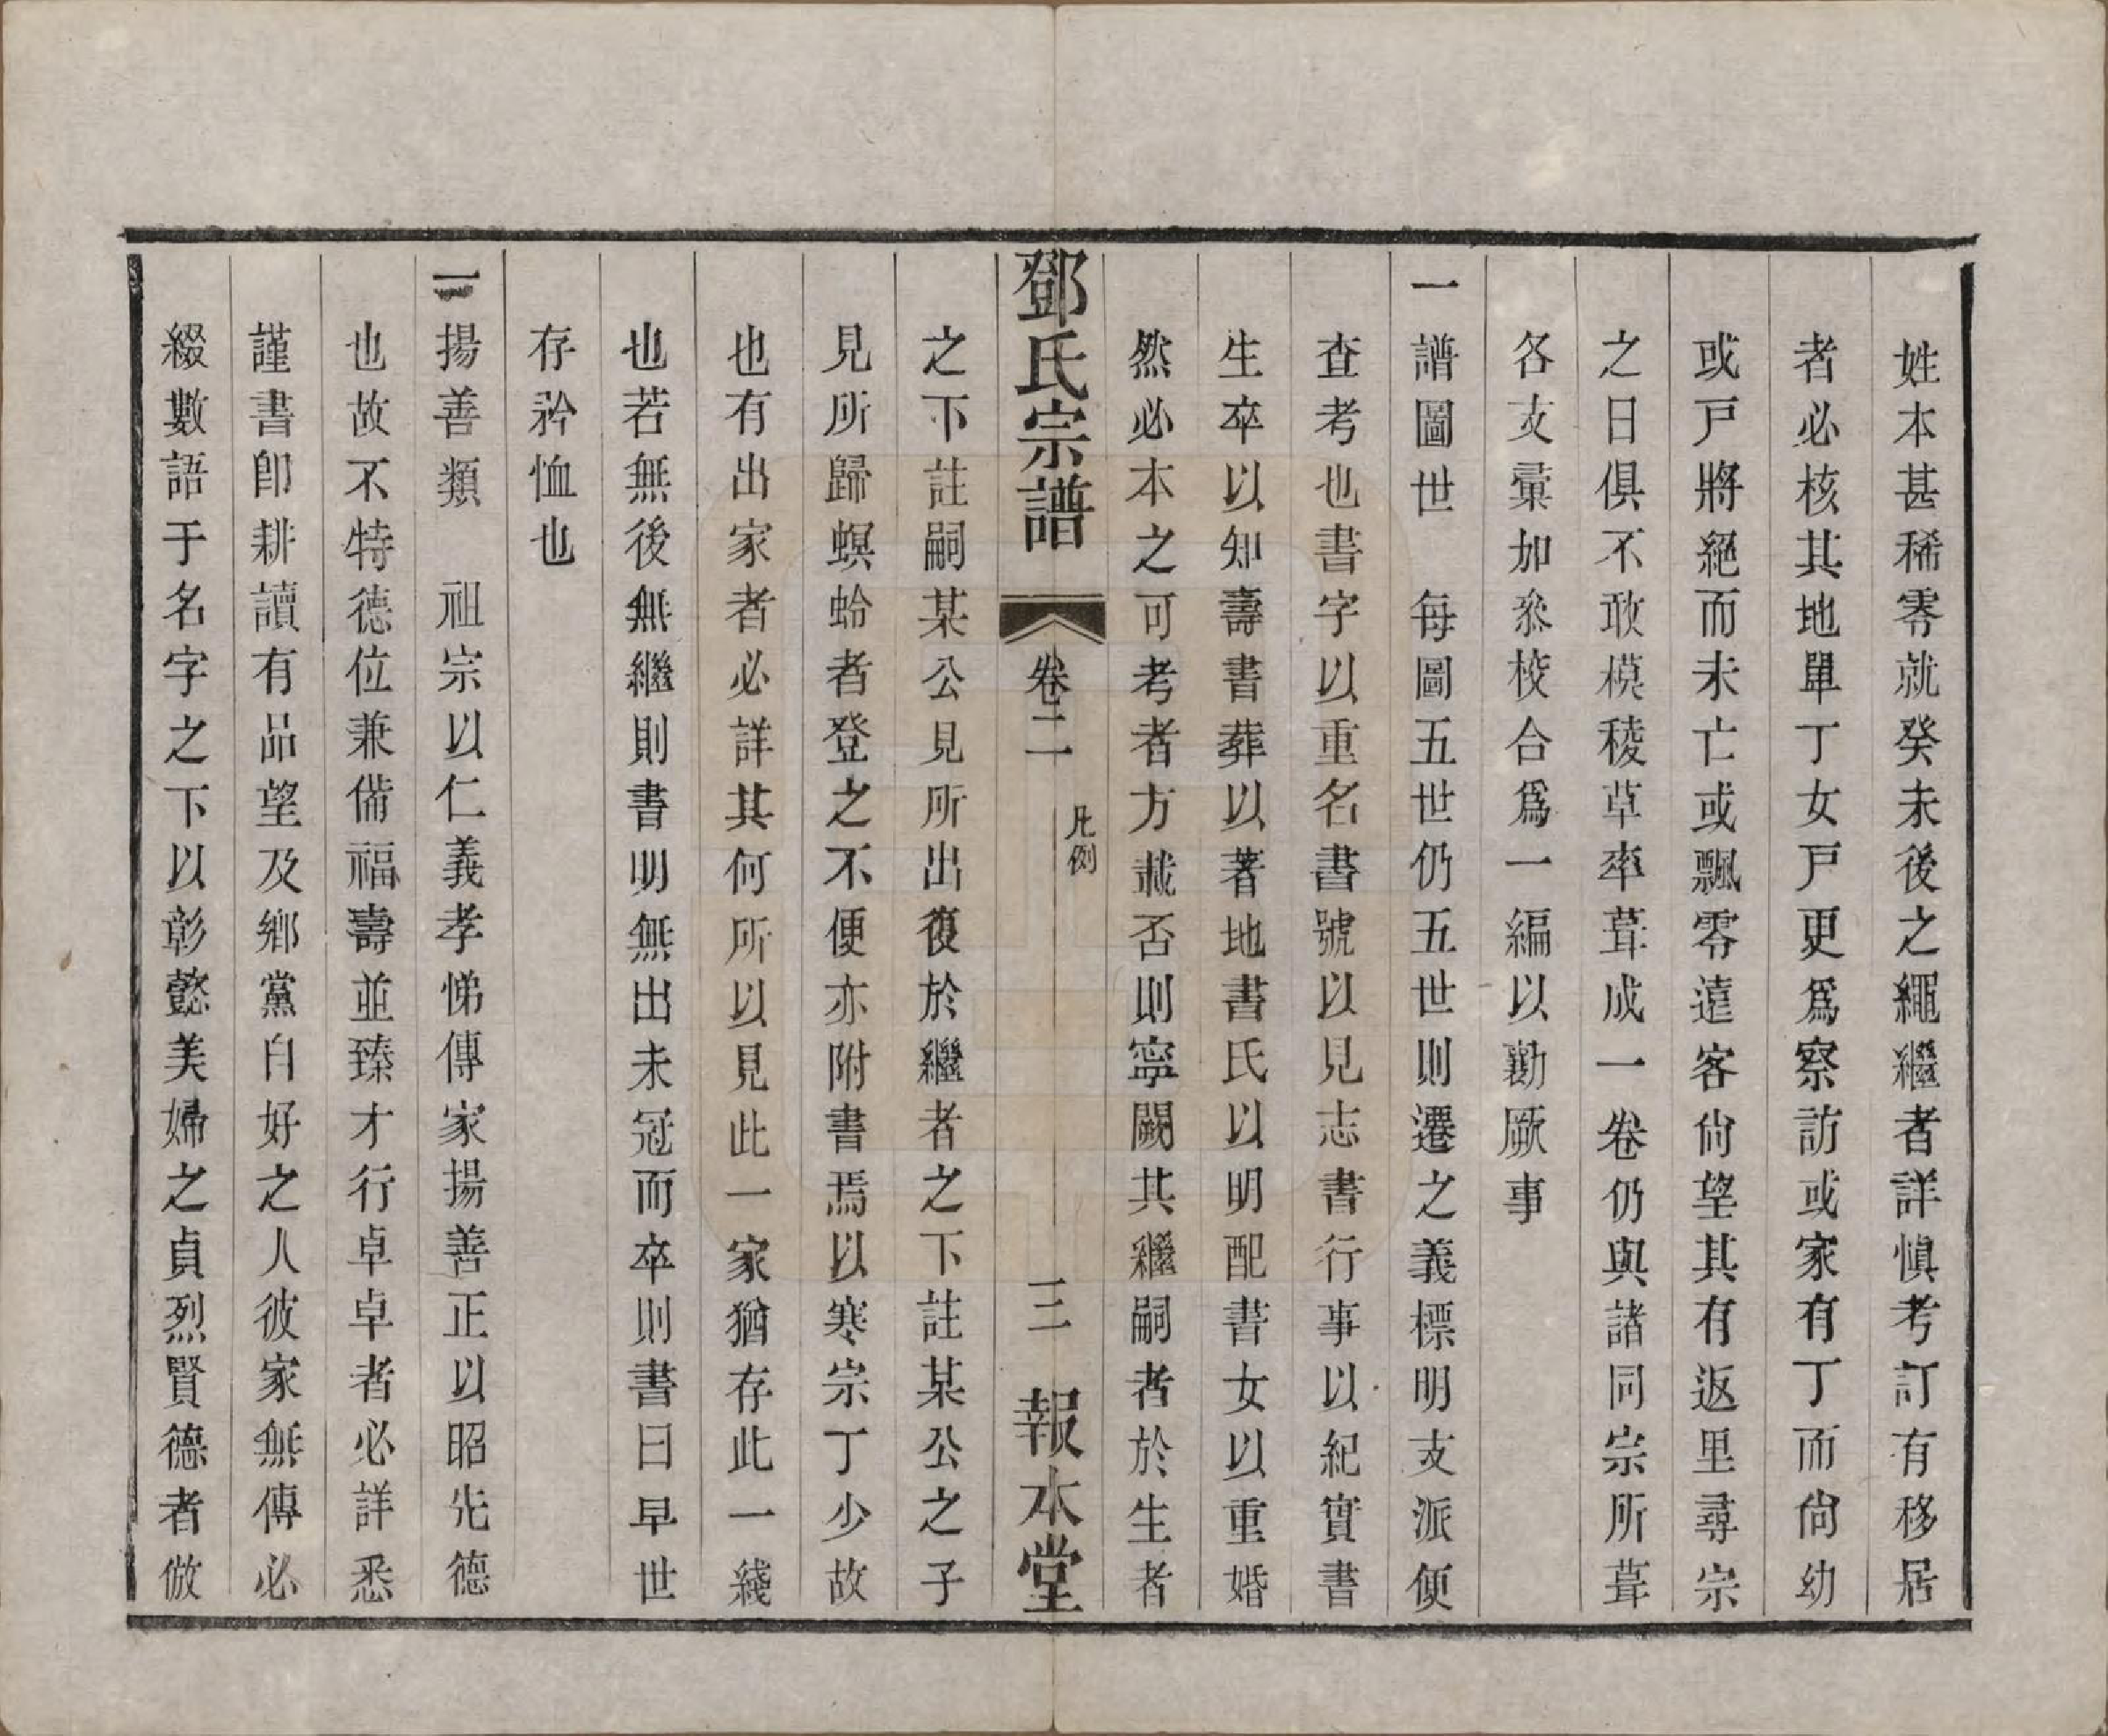 姓本甚稀零就癸未後之繩繼者詳愼考訂有移居
者必核其地單丁女戸更爲察訪或家有丁而尙幼
或戸將絕而未亡或飄零遠客尙望其有返里尋宗
之日俱不敢模稜草率葺成一卷仍與諸同宗所葺
各支彙加叅校合爲一編以勷厥事
一譜圖世　每圖五世仍五世則遷之義標明支派便
查考也書字以重名書號以見志書行事以紀實書
生卒以知壽書葬以著地書氏以明配書女以重婚
然必本之可考者方載否則寧闕其繼嗣者於生者
鄧氏宗譜　卷二　凡例　三　報本堂
之下註嗣某公見所出復於繼者之下註某公之子
見所歸螟蛉者登之不便亦附書焉以寒宗丁少故
也有出家者必詳其何所以見此一家猶存此一綫
也若無後無繼則書明無出未冠而卒則書曰早世
存矜恤也
一揚善類　祖宗以仁義孝悌傳家揚善正以昭先德
也故不特德位兼備福壽並臻才行卓卓者必詳悉
謹書卽耕讀有品望及鄉黨自好之人彼家無傳必
綴數語于名字之下以彰懿美婦之貞烈賢德者倣